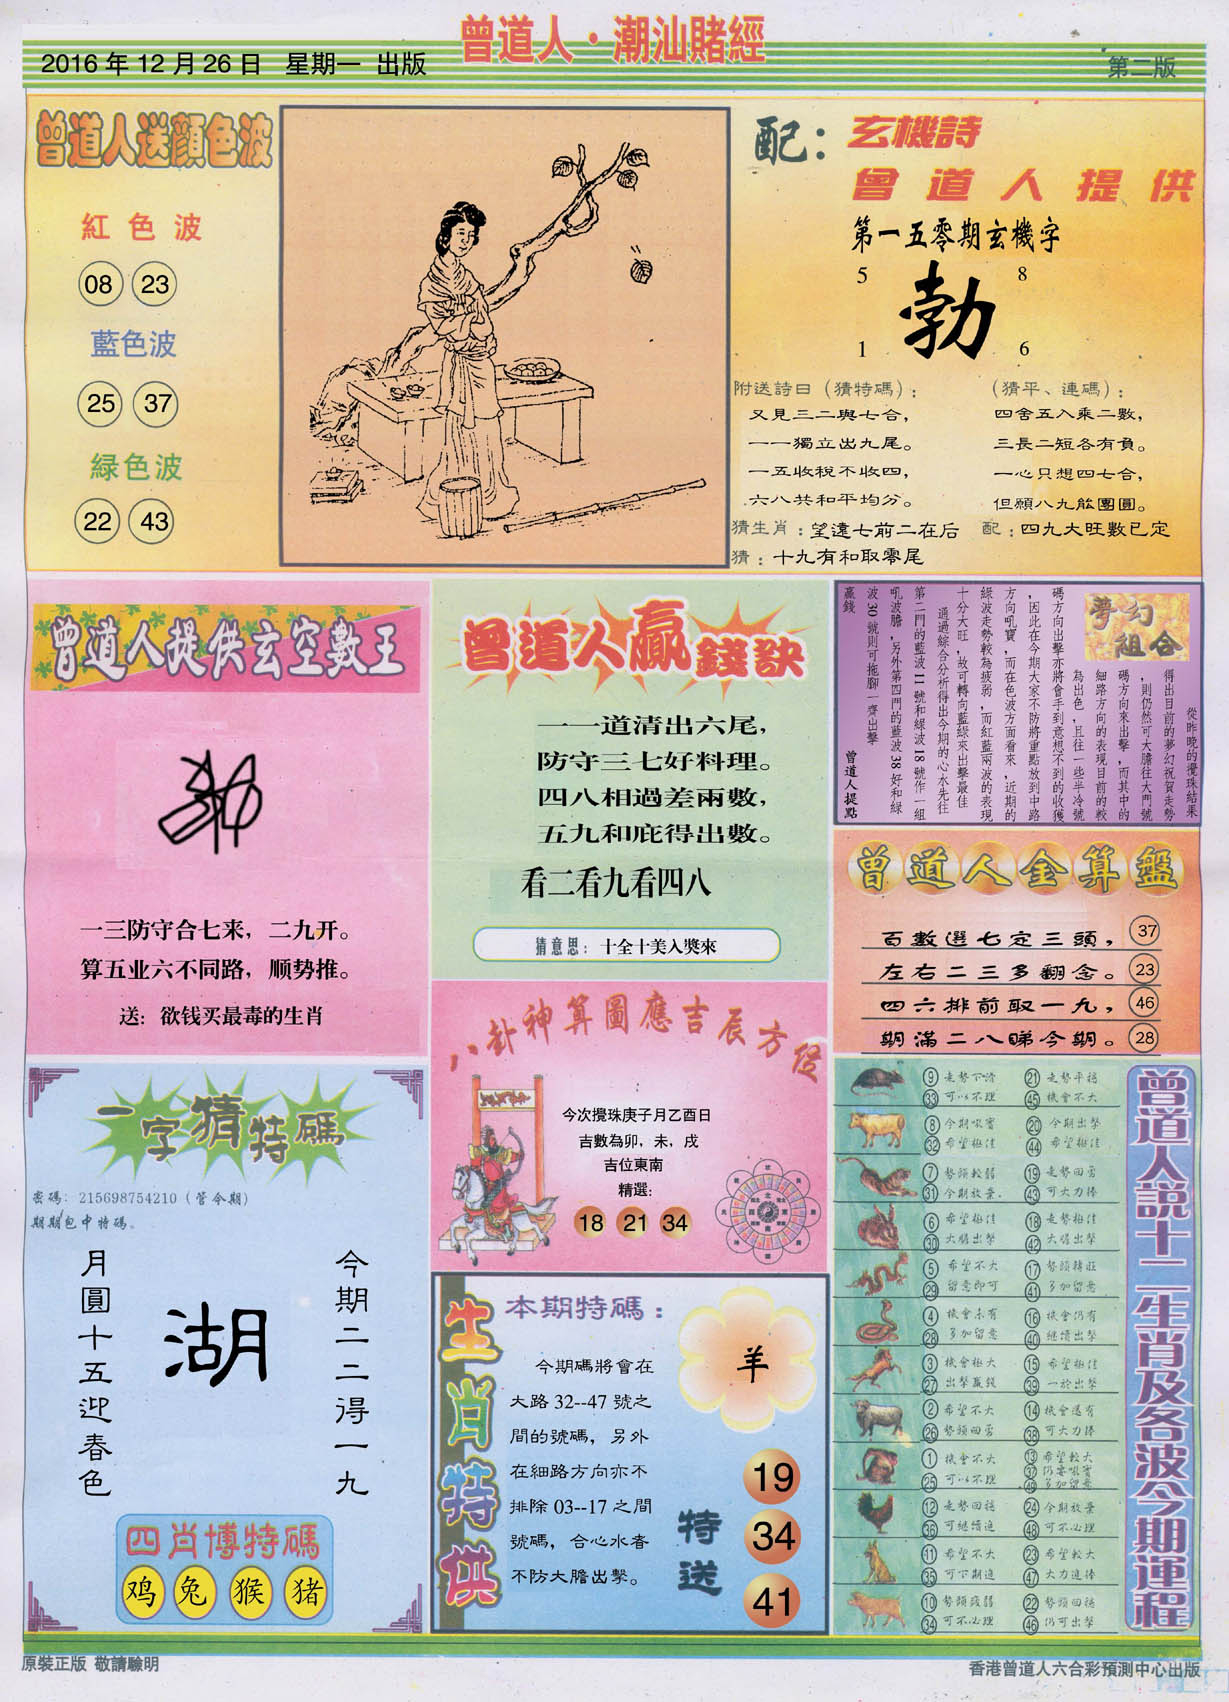 曾道人·潮汕賭經
2016年12月26日 星期一 出版
第二版
曾道人送顏色波
紅色波
08 23
藍色波
25 37
緑色波
22 43
配：玄機詩
曾道人提供
第一五零期玄機字
5 8
勃
1 6
附送詩曰（猜特碼）：
又見三二與七合，
一一獨立出九尾。
一五收稅不收四，
六八共和平均分。
（猜平、連碼）：
四舍五入乘二數，
三長二短各有負。
一心只想四七合，
但願八九能團圓。
猜生肖：望遠七前二在后
配：四九大旺數已定
猜：十九有和取零尾
曾道人提供玄空數王
一三防守合七来，二九开。
算五业六不同路，顺势推。
送：欲钱买最毒的生肖
曾道人贏錢訣
一一道清出六尾，
防守三七好料理。
四八相過差兩數，
五九和庇得出數。
看二看九看四八
猜意思：十全十美入獎來
夢幻組合
從昨晚的攪珠結果
得出目前的夢幻祝賀走勢
，則仍然可大膽往大門號
碼方向來出擊，而其中的
細路方向的表現目前的較
為出色，且往一些半冷號
碼方向出擊亦將會手到意想不到的收獲
，因此在今期大家不防將重點放到中路
方向吼寶，而在色波方面看來，近期的
綠波走勢較為疲弱，而紅藍兩波的表現
十分大旺，故可轉向藍綠來出擊最佳
通過綜合分析得出今期的心水先往
第二門的藍波11號和綠波18號作一組
吼波膽，另外第四門的藍波38好和綠
波30號則可拖腳一齊出擊
贏錢
曾道人提點
曾道人金算盤
百數選七定三頭， 37
左右二三多翻念。 23
四六排前取一九， 46
期滿二八睇今期。 28
一字猜特碼
密碼：215698754210（管今期）
期期包中特碼。
今期二二得一九
湖
月圓十五迎春色
四肖博特碼
鸡 兔 猴 猪
八卦神算圖應吉辰方位
今次攪珠庚子月乙酉日
吉數為卯，未，戌
吉位東南
精選：
18 21 34
生肖特供
本期特碼：
羊
今期碼將會在
大路32--47號之
間的號碼，另外
在細路方向亦不
排除03--17之間
號碼，合心水者
不防大膽出擊。
特送
19
34
41
曾道人説十二生肖及各波今期運程
⑨ 走勢下滑 ㉑ 走勢平穩
㉝ 可以不理 ㊺ 機會不大
⑧ 今期吸寶 ⑳ 今期出擊
㉜ 希望極佳 ㊹ 希望極佳
⑦ 勢頭較弱 ⑲ 走勢回勇
㉛ 今期放棄 ㊸ 可大力捧
⑥ 希望極佳 ⑱ 走勢極佳
㉚ 大膽出擊 ㊷ 大膽出擊
⑤ 希望不大 ⑰ 勢頭轉旺
㉙ 留意即可 ㊶ 多加留意
④ 機會未有 ⑯ 機會仍有
㉘ 多加留意 ㊵ 繼續出擊
③ 機會極大 ⑮ 希望極佳
㉗ 出擊贏錢 ㊴ 一於出擊
② 希望不大 ⑭ 機會還有
㉖ 勢頭回勇 ㊳ 可大力捧
① 機會不大 ⑬ 希望較大
㉕ 可以不理 ㊲ 仍要吸寶
㊾ 多加留意
⑫ 走勢回穩 ㉔ 今期放棄
㊱ 可繼續追 ㊽ 可不必理
⑪ 希望不大 ㉓ 希望較大
㉟ 可下期追 ㊼ 大力追捧
⑩ 勢頭疲弱 ㉒ 勢頭回穩
㉞ 可不必理 ㊻ 仍可出擊
原裝正版 敬請驗明
香港曾道人六合彩預測中心出版